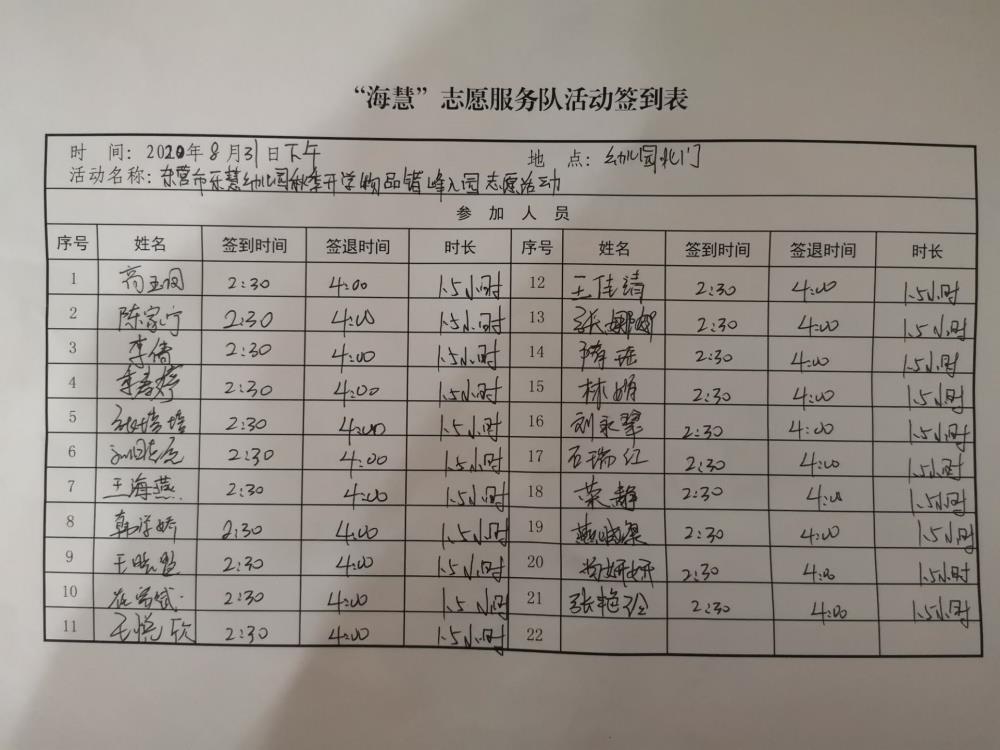 “海慧”志愿服务队活动签到表
时 间：2020年8月31日下午 地 点：幼儿园北门
活动名称：东营市乐慧幼儿园秋季开学物品错峰入园志愿活动
参 加 人 员
序号 姓名 签到时间 签退时间 时长 序号 姓名 签到时间 签退时间 时长
1 2:30 4:00 1.5小时 12 王佳靖 2:30 4:00 1.5小时
2 陈家宁 2:30 4:00 1.5小时 13 张娜娜 2:30 4:00 1.5小时
3 李倩 2:30 4:00 1.5小时 14 2:30 4:00 1.5小时
4 李春婷 2:30 4:00 1.5小时 15 林娟 2:30 4:00 1.5小时
5 2:30 4:00 1.5小时 16 刘永翠 2:30 4:00 1.5小时
6 2:30 4:00 1.5小时 17 石瑞红 2:30 4:00 1.5小时
7 王海燕 2:30 4:00 1.5小时 18 荣静 2:30 4:00 1.5小时
8 韩学娇 2:30 4:00 1.5小时 19 2:30 4:00 1.5小时
9 2:30 4:00 1.5小时 20 尚妍妍 2:30 4:00 1.5小时
10 2:30 4:00 1.5小时 21 张艳玲 2:30 4:00 1.5小时
11 王悦欣 2:30 4:00 1.5小时 22